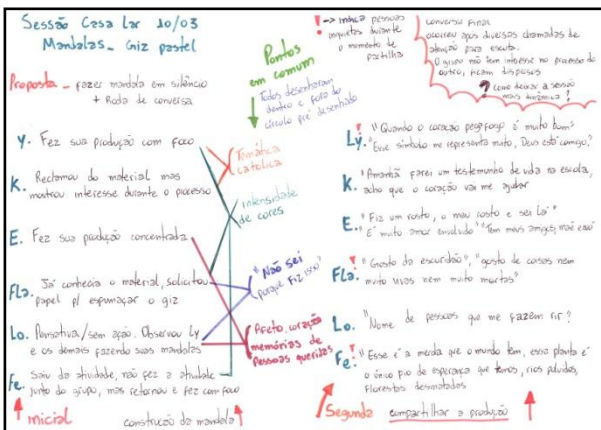 Sessão Casa Lar 10/03
Mandalas - Giz pastel
Proposta - fazer mandala em silêncio
+ Roda de conversa
Y. Fez sua produção com foco
K. Reclamou do material mas
mostrou interesse durante o processo
E. Fez sua produção concentrada
Fla. Já conhecia o material, solicitou
papel p/ espumaçar o giz
Lo. Pensativa/sem ação. Observou Ly
e os demais fazendo suas mandalas
Fe. Saiu da atividade, não fez a atividade
junto do grupo, mas retornou e fez com foco
inicial
construção da mandala
Pontos
em comum
Todos desenharam
dentro e fora do
círculo pré desenhado
Temática
católica
intensidade
de cores
"Não sei
porque fiz isso"
Afeto, coração
memórias de
pessoas queridas
! -> indica pessoas
inquietas durante
o momento de
partilha
conversa final
ocorreu após diversas chamadas de
atenção para escuta.
O grupo não tem interesse no processo do
outro, ficam dispersos
? como deixar a sessão
mais dinâmica?
Ly! "Quando o coração pega fogo é muito bom"
"Esse símbolo me representa muito, Deus está comigo"
K. "Amanhã farei um testemunho de vida na escola,
acho que o coração vai me ajudar
E. "Fiz um rosto, o meu rosto e sei lá"
"É muito amor envolvido" "Tem meus amigos, mãe
Fla! "Gosto da escuridão", "gosto de coisas nem
muito vivas nem muito mortas"
Lo. "Nome de pessoas que me fazem rir"
Fe! "Esse é a merda que o mundo tem, essa planta é
o único fio de esperança que temos, rios poluídos,
Florestas desmatadas
Segunda compartilhar a produção